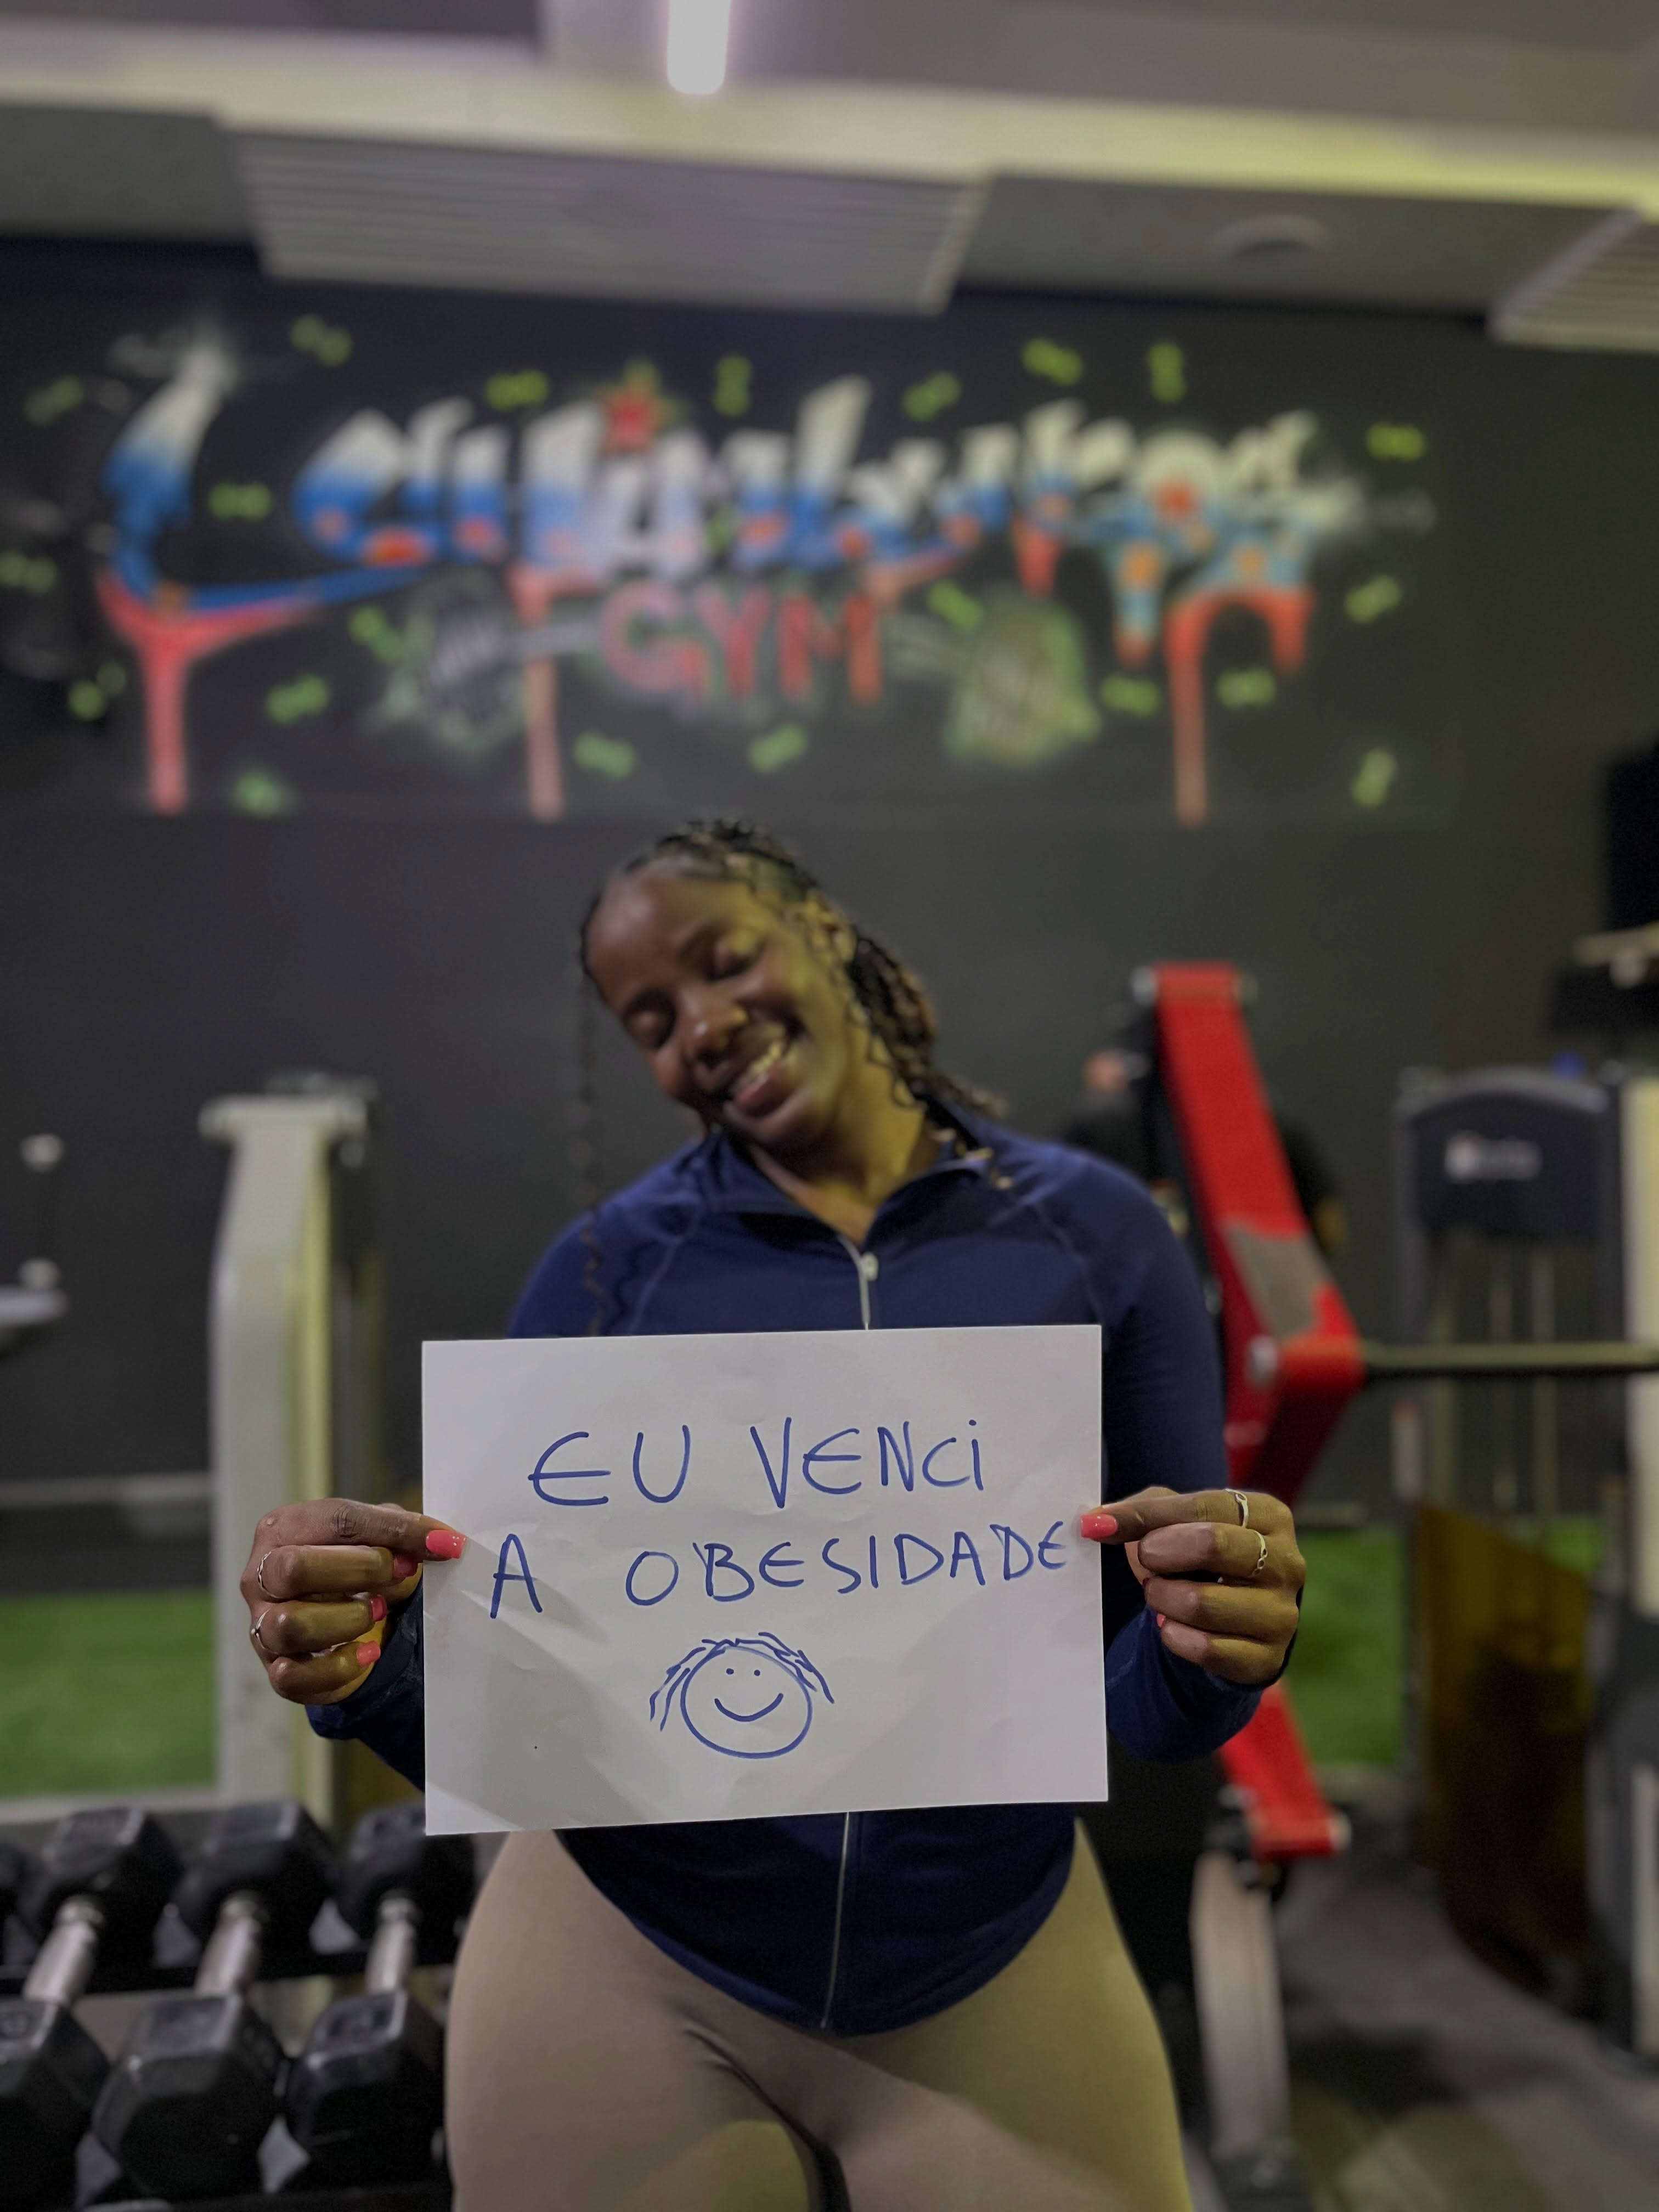 GYM
EU VENCi
A OBESIDADE